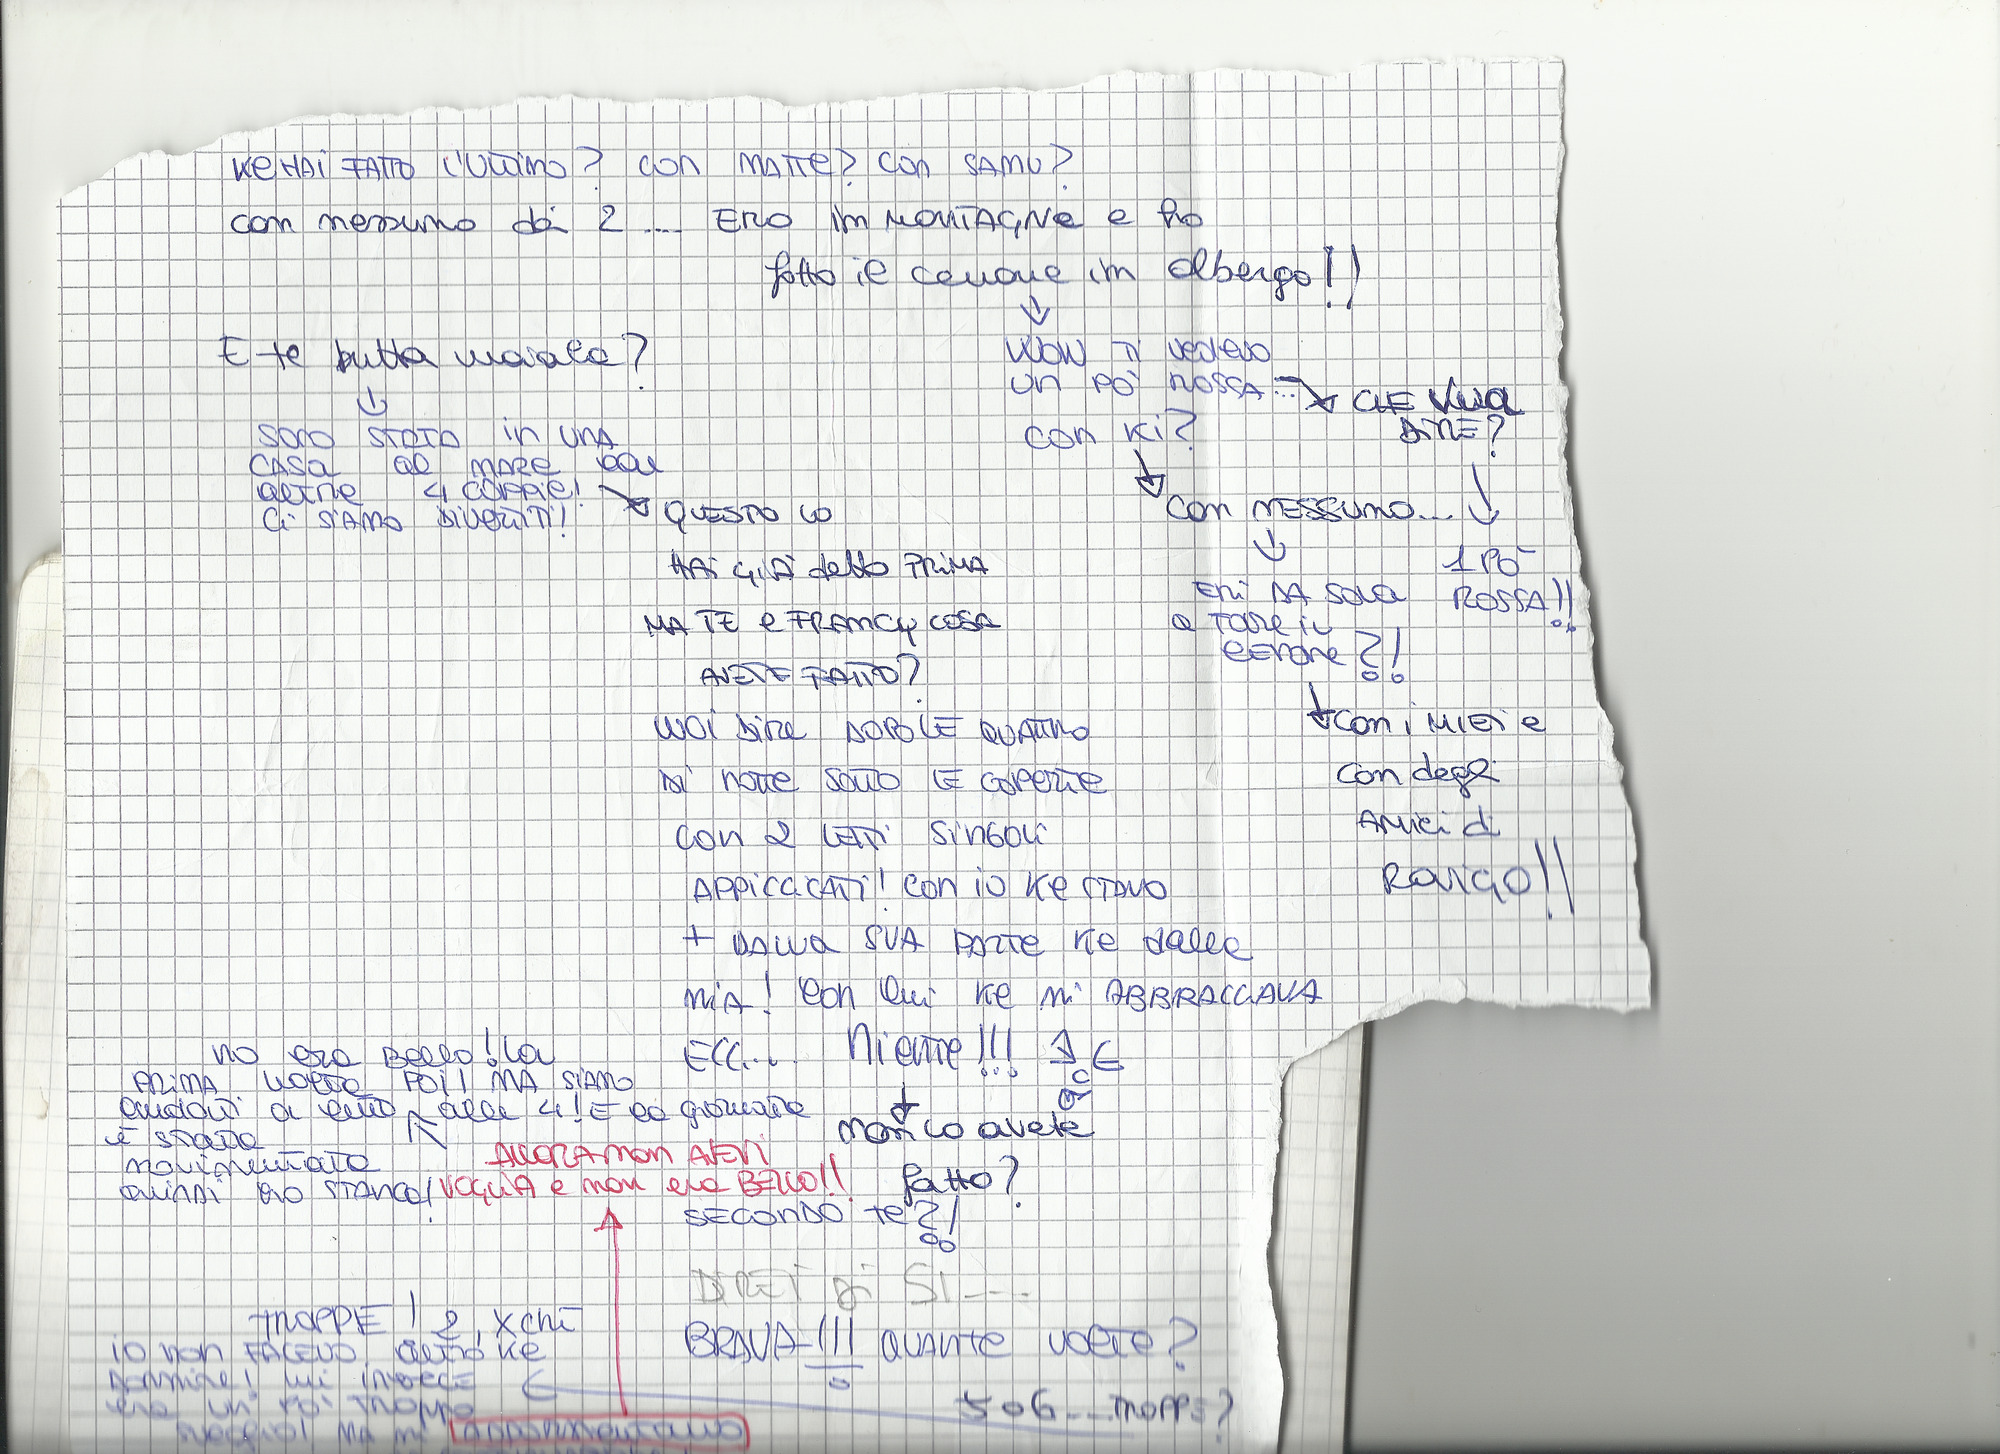 KE HAI FATTO L'ULTIMO? CON MATTE? CON SAMU?
con nessuno dei 2.... ERO IN MONTAGNE e ho
fatto il cenone in albergo!!
E te butta maiala?
SONO STATA IN UNA
CASA AL MARE CON
ALTRE 4 COPPIE!
CI SIAMO DIVERTITI!
WOW TI VEDEVO
UN PO' ROSSA...
CHE VUOL
DIRE?
1 PO'
ROSSA!!
CON KI?
CON NESSUNO...
ERI DA SOLA
A FARE IL
CENONE?!
CON I MIEI e
con degli
AMICI di
ROVIGO!!
QUESTO LO
HAI GIÀ detto PRIMA
MA TE e FRANCY COSA
AVETE FATTO?
VUOI DIRE DOPO LE QUATTRO
DI NOTTE SOTTO LE COPERTE
CON 2 LETTI SINGOLI
APPICCICATI! CON IO KE STAVO
+ DALLA SUA PARTE KE DALLA
MIA! CON LUI KE MI ABBRACCIAVA
ECC... NIENTE!!!
non lo avete
fatto?
SECONDO TE?!
DIREI di SI....
BRAVA!!! QUANTE VOLTE?
5 o 6.... TROPPE?
TROPPE! 2, XCHÈ
IO NON FACEVO ALTRO KE
DORMIRE! LUI INVECE
ERA UN PO' TROPPO
SVEGLIO! MA MI ADDORMENTAVO
ALLORA non AVEVI
VOGLIA e non era BELLO!!
NO ERA BELLO! LA
PRIMA VOLTA POI! MA SIAMO
ANDATI A LETTO ALLE 4! E LA GIORNATA
È STATA
MOVIMENTATA
QUINDI ERO STANCA!